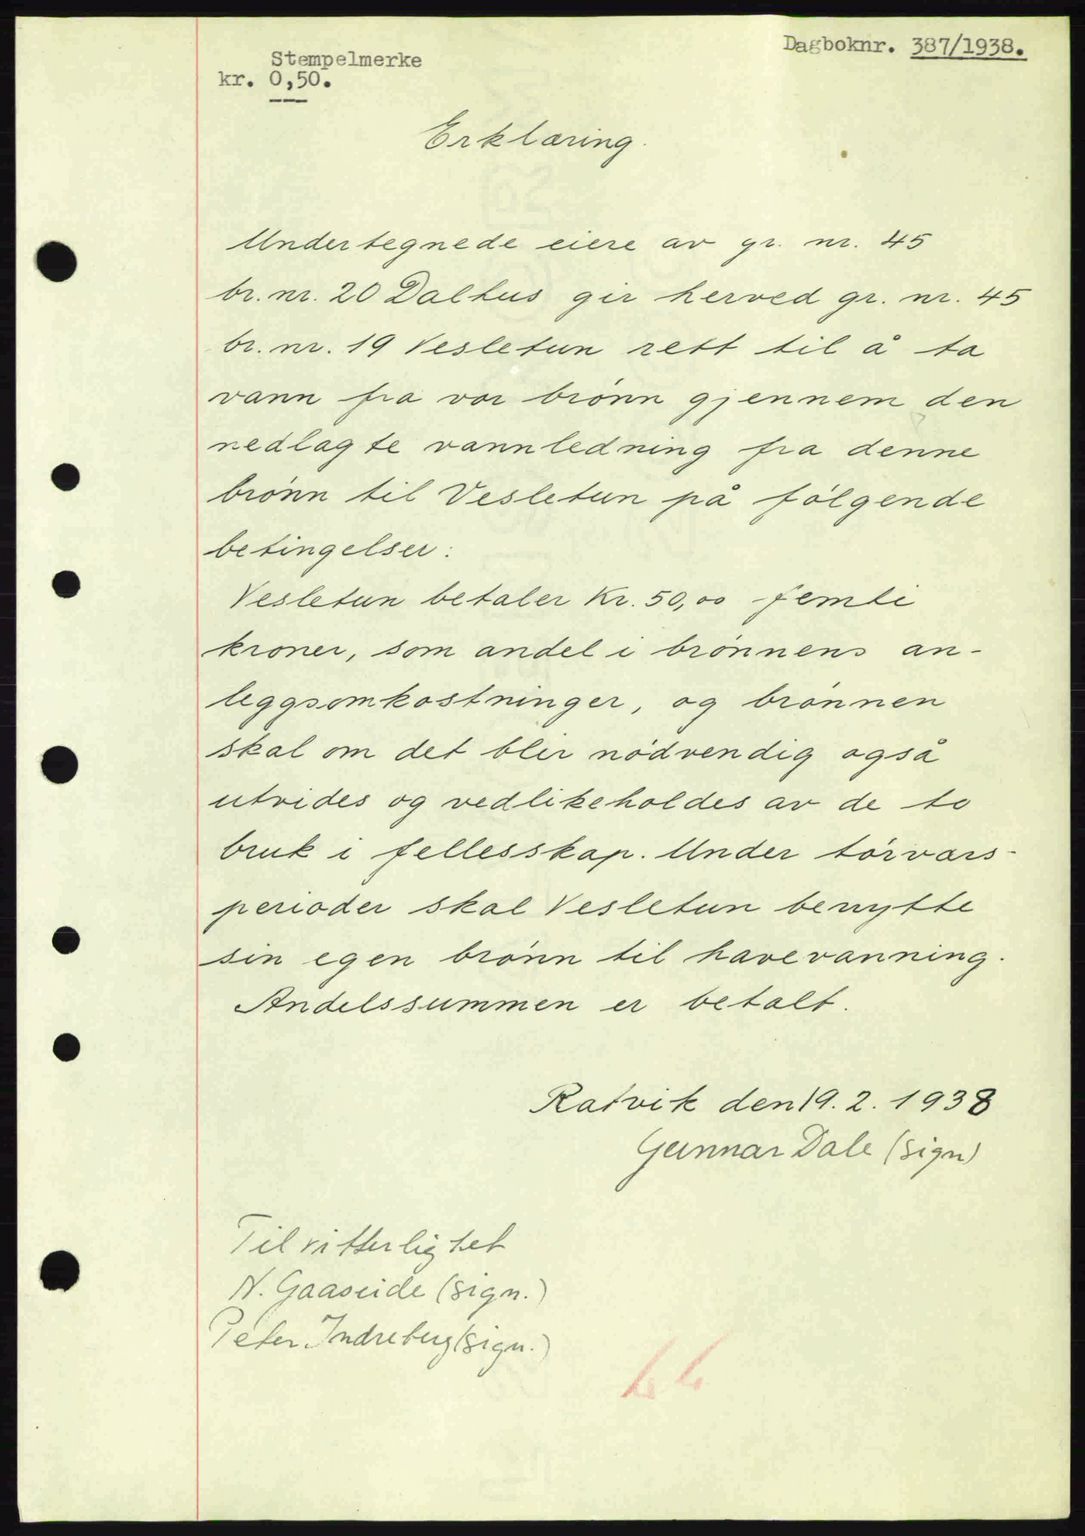 Dagboknr. 387/1938.
Stempelmerke
kr. 0,50.
Erklæring.
Undertegnede eiere av gr. nr. 45
br. nr. 20 Dalhus gir herved gr. nr. 45
br. nr. 19 Vesletun rett til å ta
vann fra vor brønn gjennem den
nedlagte vannledning fra denne
brønn til Vesletun på følgende
betingelser:
Vesletun betaler Kr. 50,00 femti
kroner, som andel i brønnens an-
leggsomkostninger, og brønnen
skal om det blir nødvendig også
utvides og vedlikeholdes av de to
bruk i fellesskap. Under tørvars-
perioder skal Vesletun benytte
sin egen brønn til havevanning.
Andelssummen er betalt.
Ratvik den 19. 2. 1938
Gunnar Dale (sign)
Til vitterlighet
N. Gaaseide (sign.)
Peter Indreberg (sign.)